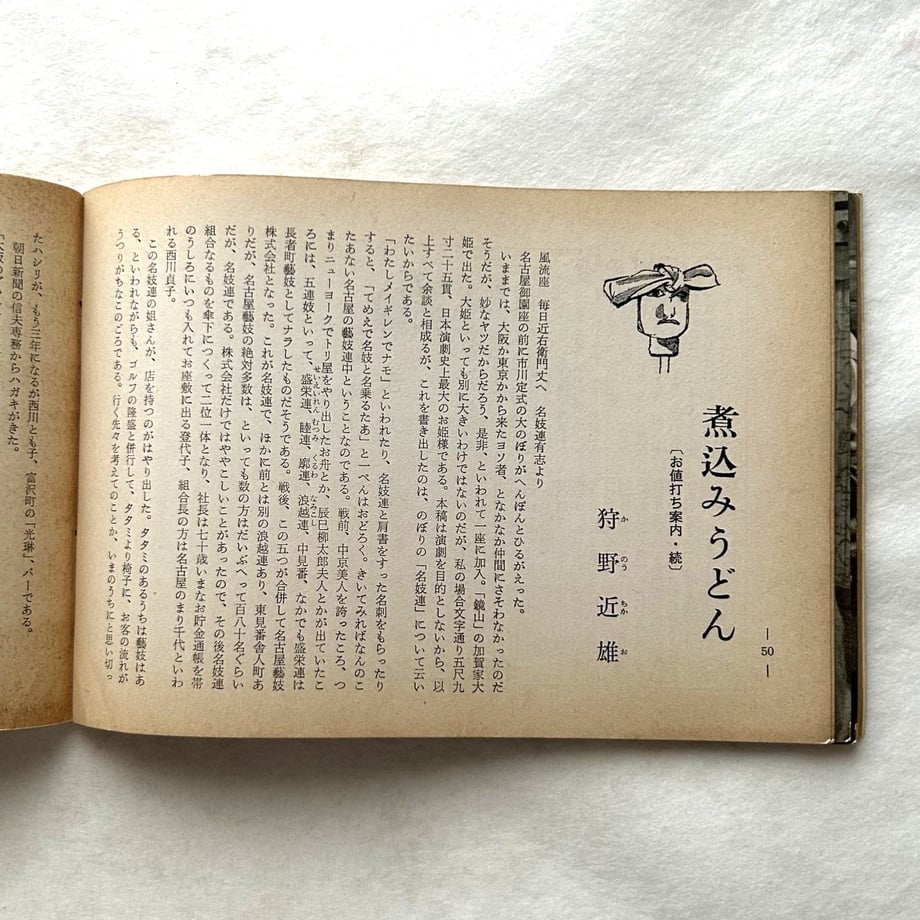 煮込みうどん
〔お値打ち案内・続〕
狩野近雄
かのうちかお
― 50 ―
風流座　毎日近右衛門丈へ　名妓連有志より
名古屋御園座の前に市川定式の大のぼりがへんぽんとひるがえった。
いままでは、大阪か東京かから来たヨソ者、となかなか仲間にさそわなかったのだ
そうだが、妙なヤツだからだろう、是非、といわれて一座に加入。「鏡山」の加賀家大
姫で出た。大姫といっても別に大きいわけではないのだが、私の場合文字通り五尺九
寸二十五貫、日本演劇史上最大のお姫様である。本稿は演劇を目的としないから、以
上すべて余談と相成るが、これを書き出したのは、のぼりの「名妓連」について云い
たいからである。
「わたしメイギレンでナモ」といわれたり、名妓連と肩書をすった名刺をもらったり
すると、「てめえで名妓と名乗るたあ」と一ぺんはおどろく。きいてみればなんのこ
たあない名古屋の藝妓連中ということなのである。戦前、中京美人を誇ったころ、つ
まりニューヨークでトリ屋をやり出したお舟とか、辰巳柳太郎夫人とかが出ていたこ
ろには、五連妓といって、盛栄連、睦連、廓連、浪越連、中見番、なかでも盛栄連は
せいえいれん　むつみ　くるわ　なみこし
長者町藝妓としてナラしたものだそうである。戦後、この五つが合併して名古屋藝妓
株式会社となった。これが名妓連で、ほかに前とは別の浪越連あり、東見番舎人町あ
りだが、名古屋藝妓の絶対多数は、といっても数の方はだいぶへって百八十名ぐらい
だが、名妓連である。株式会社だけではややこしいことがあったので、その後名妓連
組合なるものを傘下につくって二位一体となり、社長は七十歳いまなお貯金通帳を帯
のうしろにいつも入れてお座敷に出る登代子、組合長の方は名古屋のまり千代といわ
れる西川貞子。
この名妓連の姐さんが、店を持つのがはやり出した。タタミのあるうちは藝妓はあ
る、といわれながらも、ゴルフの隆盛と併行して、タタミより椅子に、お客の流れが
うつりがちなこのごろである。行く先々を考えてのことか、いまのうちにと思い切っ
たハシリが、もう三年になるが西川とも子、富沢町の「光琳」、バーである。
朝日新聞の信夫専務からハガキがきた。